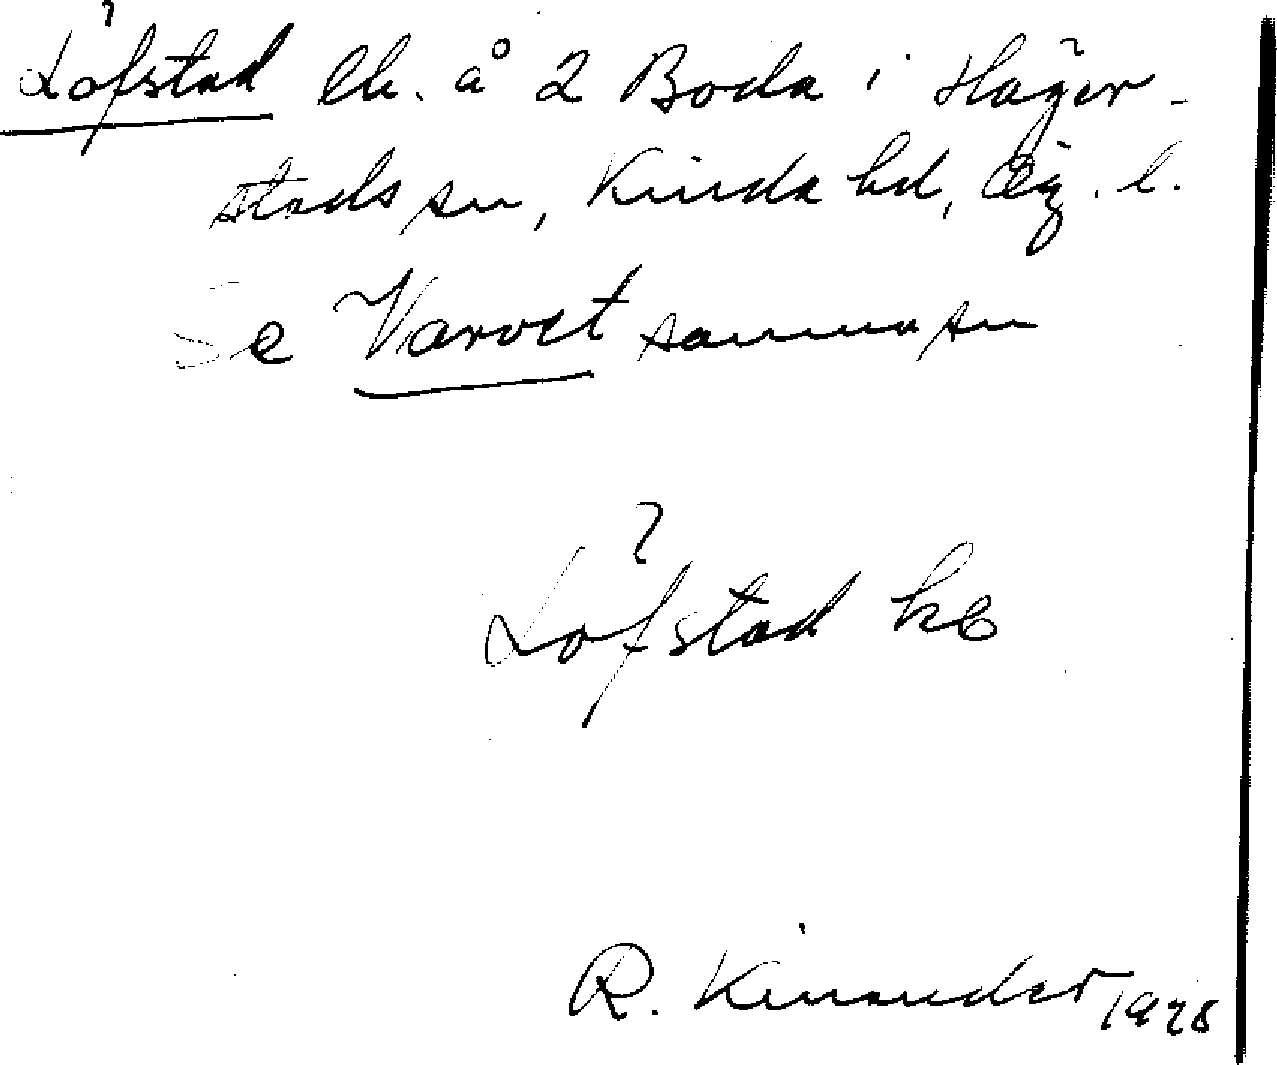 Löfstad lh. å 2 Boda i Häger-
stads sn, Kinda hd, Ög. l.
Se Varvet samma sn
Löfstad kb
R. Kinander 1928